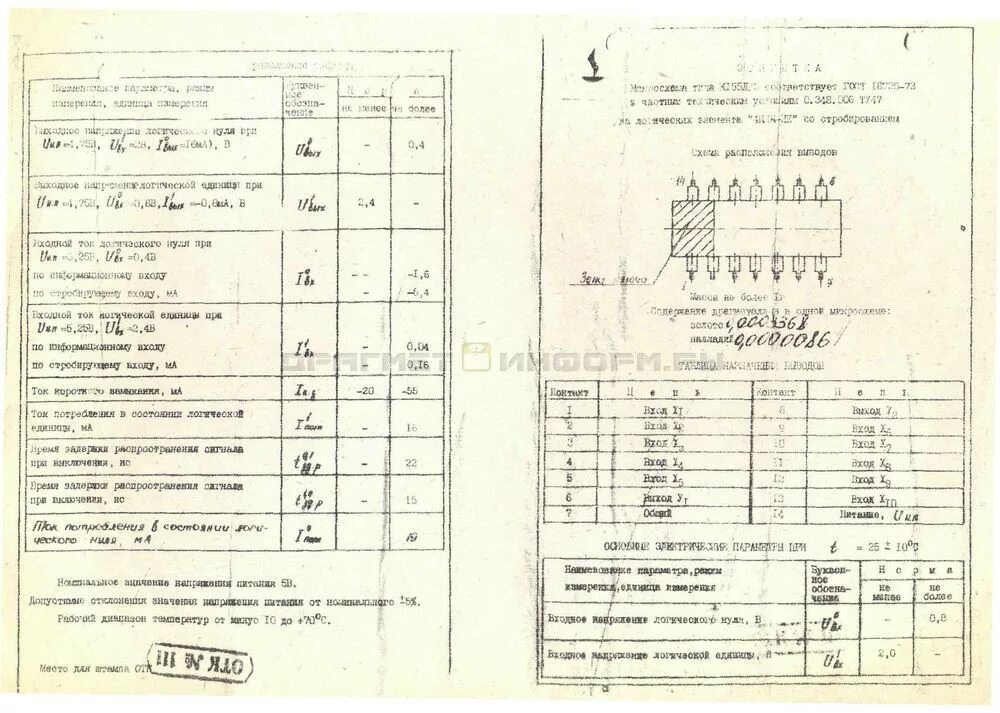 Продолжение таблицы
Наименование параметра, режим измерения, единица измерения
Буквенное обозначение
Н о р м а
не менее
не более
Выходное напряжение логического нуля при
Uи.п=4,75В, U¹вх=2В, I⁰вых=16мА), В
U⁰вых
-
0,4
Выходное напряжение логической единицы при
Uи.п=4,75В, U⁰вх=0,8В, I¹вых=-0,8мА, В
U¹вых
2,4
-
Входной ток логического нуля при
Uип=5,25В, U⁰вх=0,4В
по информационному входу
I⁰вх
-
-1,6
по стробирующему входу, мА
-
-6,4
Входной ток логической единицы при
Uип=5,25В, U¹вх=2,4В
по информационному входу
I¹вх
-
0,04
по стробирующему входу, мА
-
0,16
Ток короткого замыкания, мА
Iк.з
-20
-55
Ток потребления в состоянии логической
единицы, мА
I¹пот
-
16
Время задержки распространения сигнала
при выключении, нс
-
22
Время задержки распространения сигнала
при включении, нс
-
15
Ток потребления в состоянии логи-
ческого нуля, мА
I⁰пот
19
Номинальное значение напряжения питания 5В.
Допустимые отклонения значения напряжения питания от номинального ±5%.
Рабочий диапазон температур от минус 10 до +70°С.
Место для штампа ОТК
ОТК № 111
1
Э Т И К Е Т К А
Микросхема типа соответствует ГОСТ
и частным техническим условиям 0.348.006 ТУ47
логических элемента со стробированием
Схема расположения выводов
14
8
1
7
ключа
Масса не более 1г
Содержание драгметалла в одной микросхеме:
золото
палладий
ДРАГМЕТ ИНФОРМ.РУ
ТАБЛИЦА НАЗНАЧЕНИЯ ВЫВОДОВ
Контакт
Ц е п ь
Контакт
Ц е п ь
1
Вход X1
8
Выход У2
2
Вход X2
9
Вход X6
3
Вход X3
10
Вход X7
4
Вход X4
11
Вход X8
5
Вход X5
12
Вход X9
6
Выход У1
13
Вход X10
7
Общий
14
Питание, Uи.п
ОСНОВНЫЕ ЭЛЕКТРИЧЕСКИЕ ПАРАМЕТРЫ ПРИ t = 25 ± 10°С
Наименование параметра, режим
измерения, единица измерения
Буквенное обозначение
Н о р м а
не менее
не более
Входное напряжение логического нуля, В
U⁰вх
-
0,8
Входное напряжение логической единицы, В
U¹вх
2,0
-